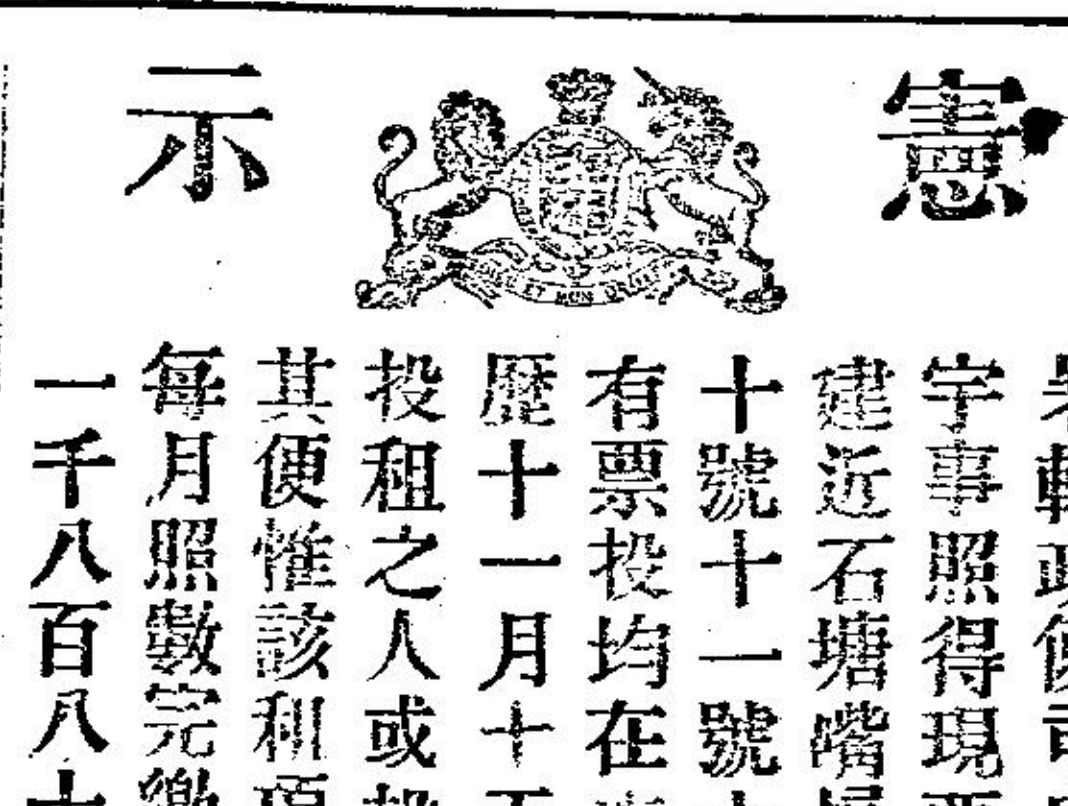 憲示
DIEU ET MON DROIT
署輔政使司
宇事照得現
建近石塘嘴
十號十一號
有票投均在
歷十一月十
投租之人或
其便惟該租
每月照數完
一千八百八十